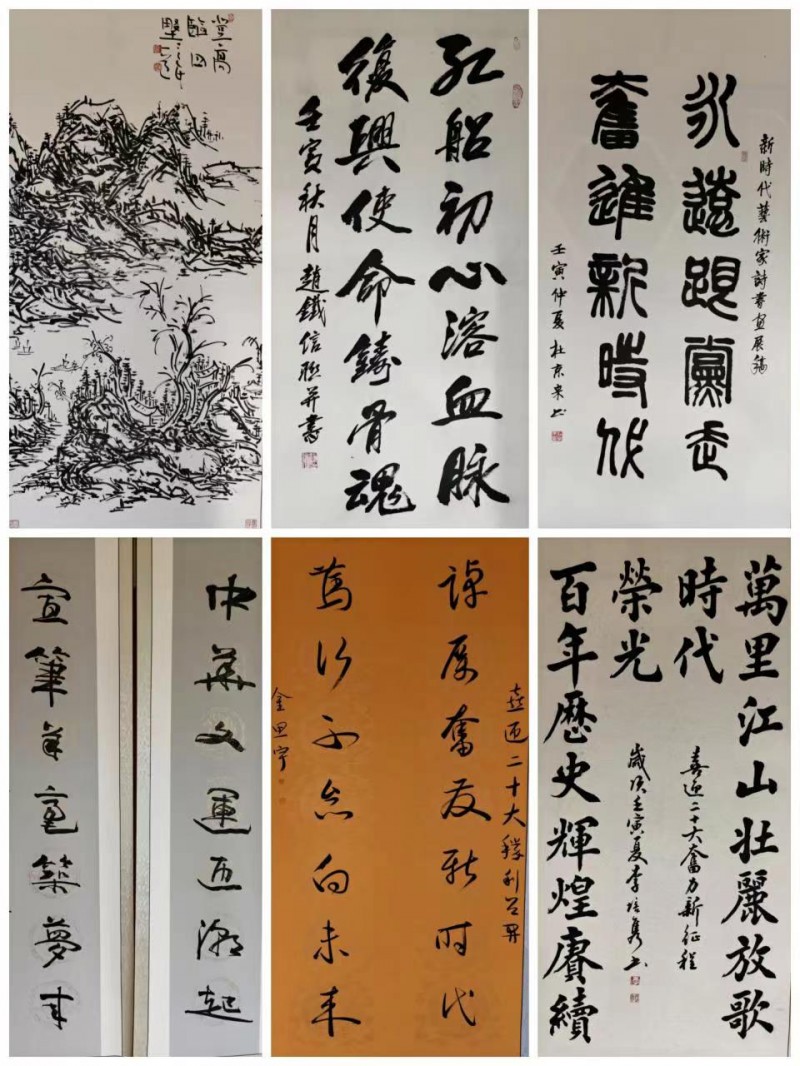 紅船初心溶血脉
復興使命鑄骨魂
壬寅秋月趙鐵信聯并書
新時代藝術家詩書畫展稿
永遠跟黨走
奮進新時代
壬寅仲夏杜京
中華文運迎潮起
宣筆羊毫築夢來
喜迎二十大勝利召開
踔厉奮發新时代
篤行不怠向未来
金思宇
萬里江山壯麗放歌
時代
喜迎二十大奮力新征程
百年歷史輝煌賡續
榮光
歲次壬寅夏李培隽书